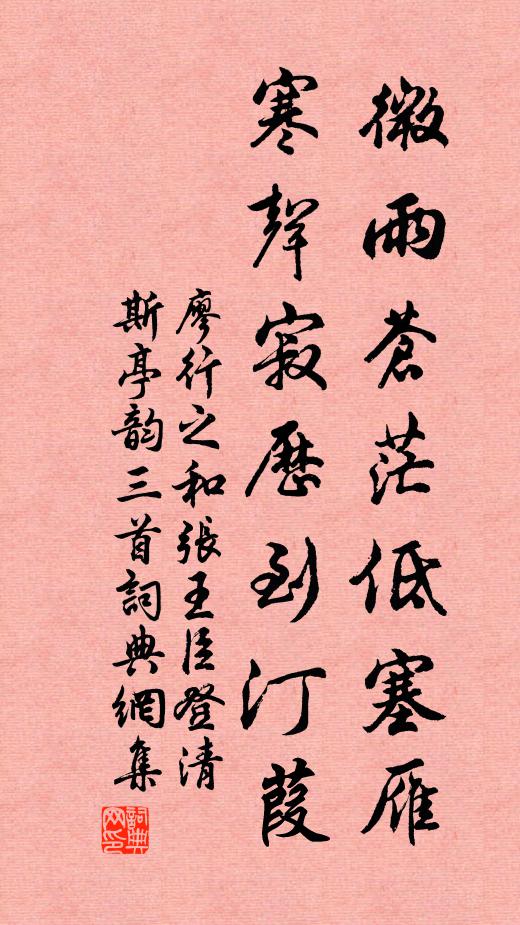 微雨蒼茫低塞雁
寒聲寂歷到汀葭
廖行之和張王臣登清
斯亭韵三首詞典網集
詞典
网印